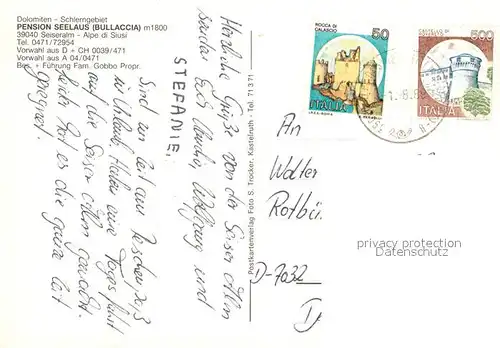 Dolomiten - Schlerngebiet
PENSION SEELAUS (BULLACCIA) m1800
39040 Seiseralm - Alpe di Siusi
Tel. 0471/72954
Vorwahl aus D + CH 0039/471
Vorwahl aus A 04/0471
Bes. + Führung Fam. Gobbo Propr.
Herzliche Grüße von der Seiser Alm
senden Euch Monika, Wolfgang und
STEFANIE.
Sind zur Zeit am Reschenpaß
in Urlaub. Haben eine Tagesfahrt
auf die Seiser Alm gemacht.
Leider hat es die ganze Zeit
geregnet.
Postkartenverlag Foto S. Trocker, Kastelruth - Tel. 71371
ROCCA DI
CALASCIO
50
ITALIA
CASTELLO DI
500
ITALIA
An
Walter
Rotbü
D-7032
privacy protection
Datenschutz